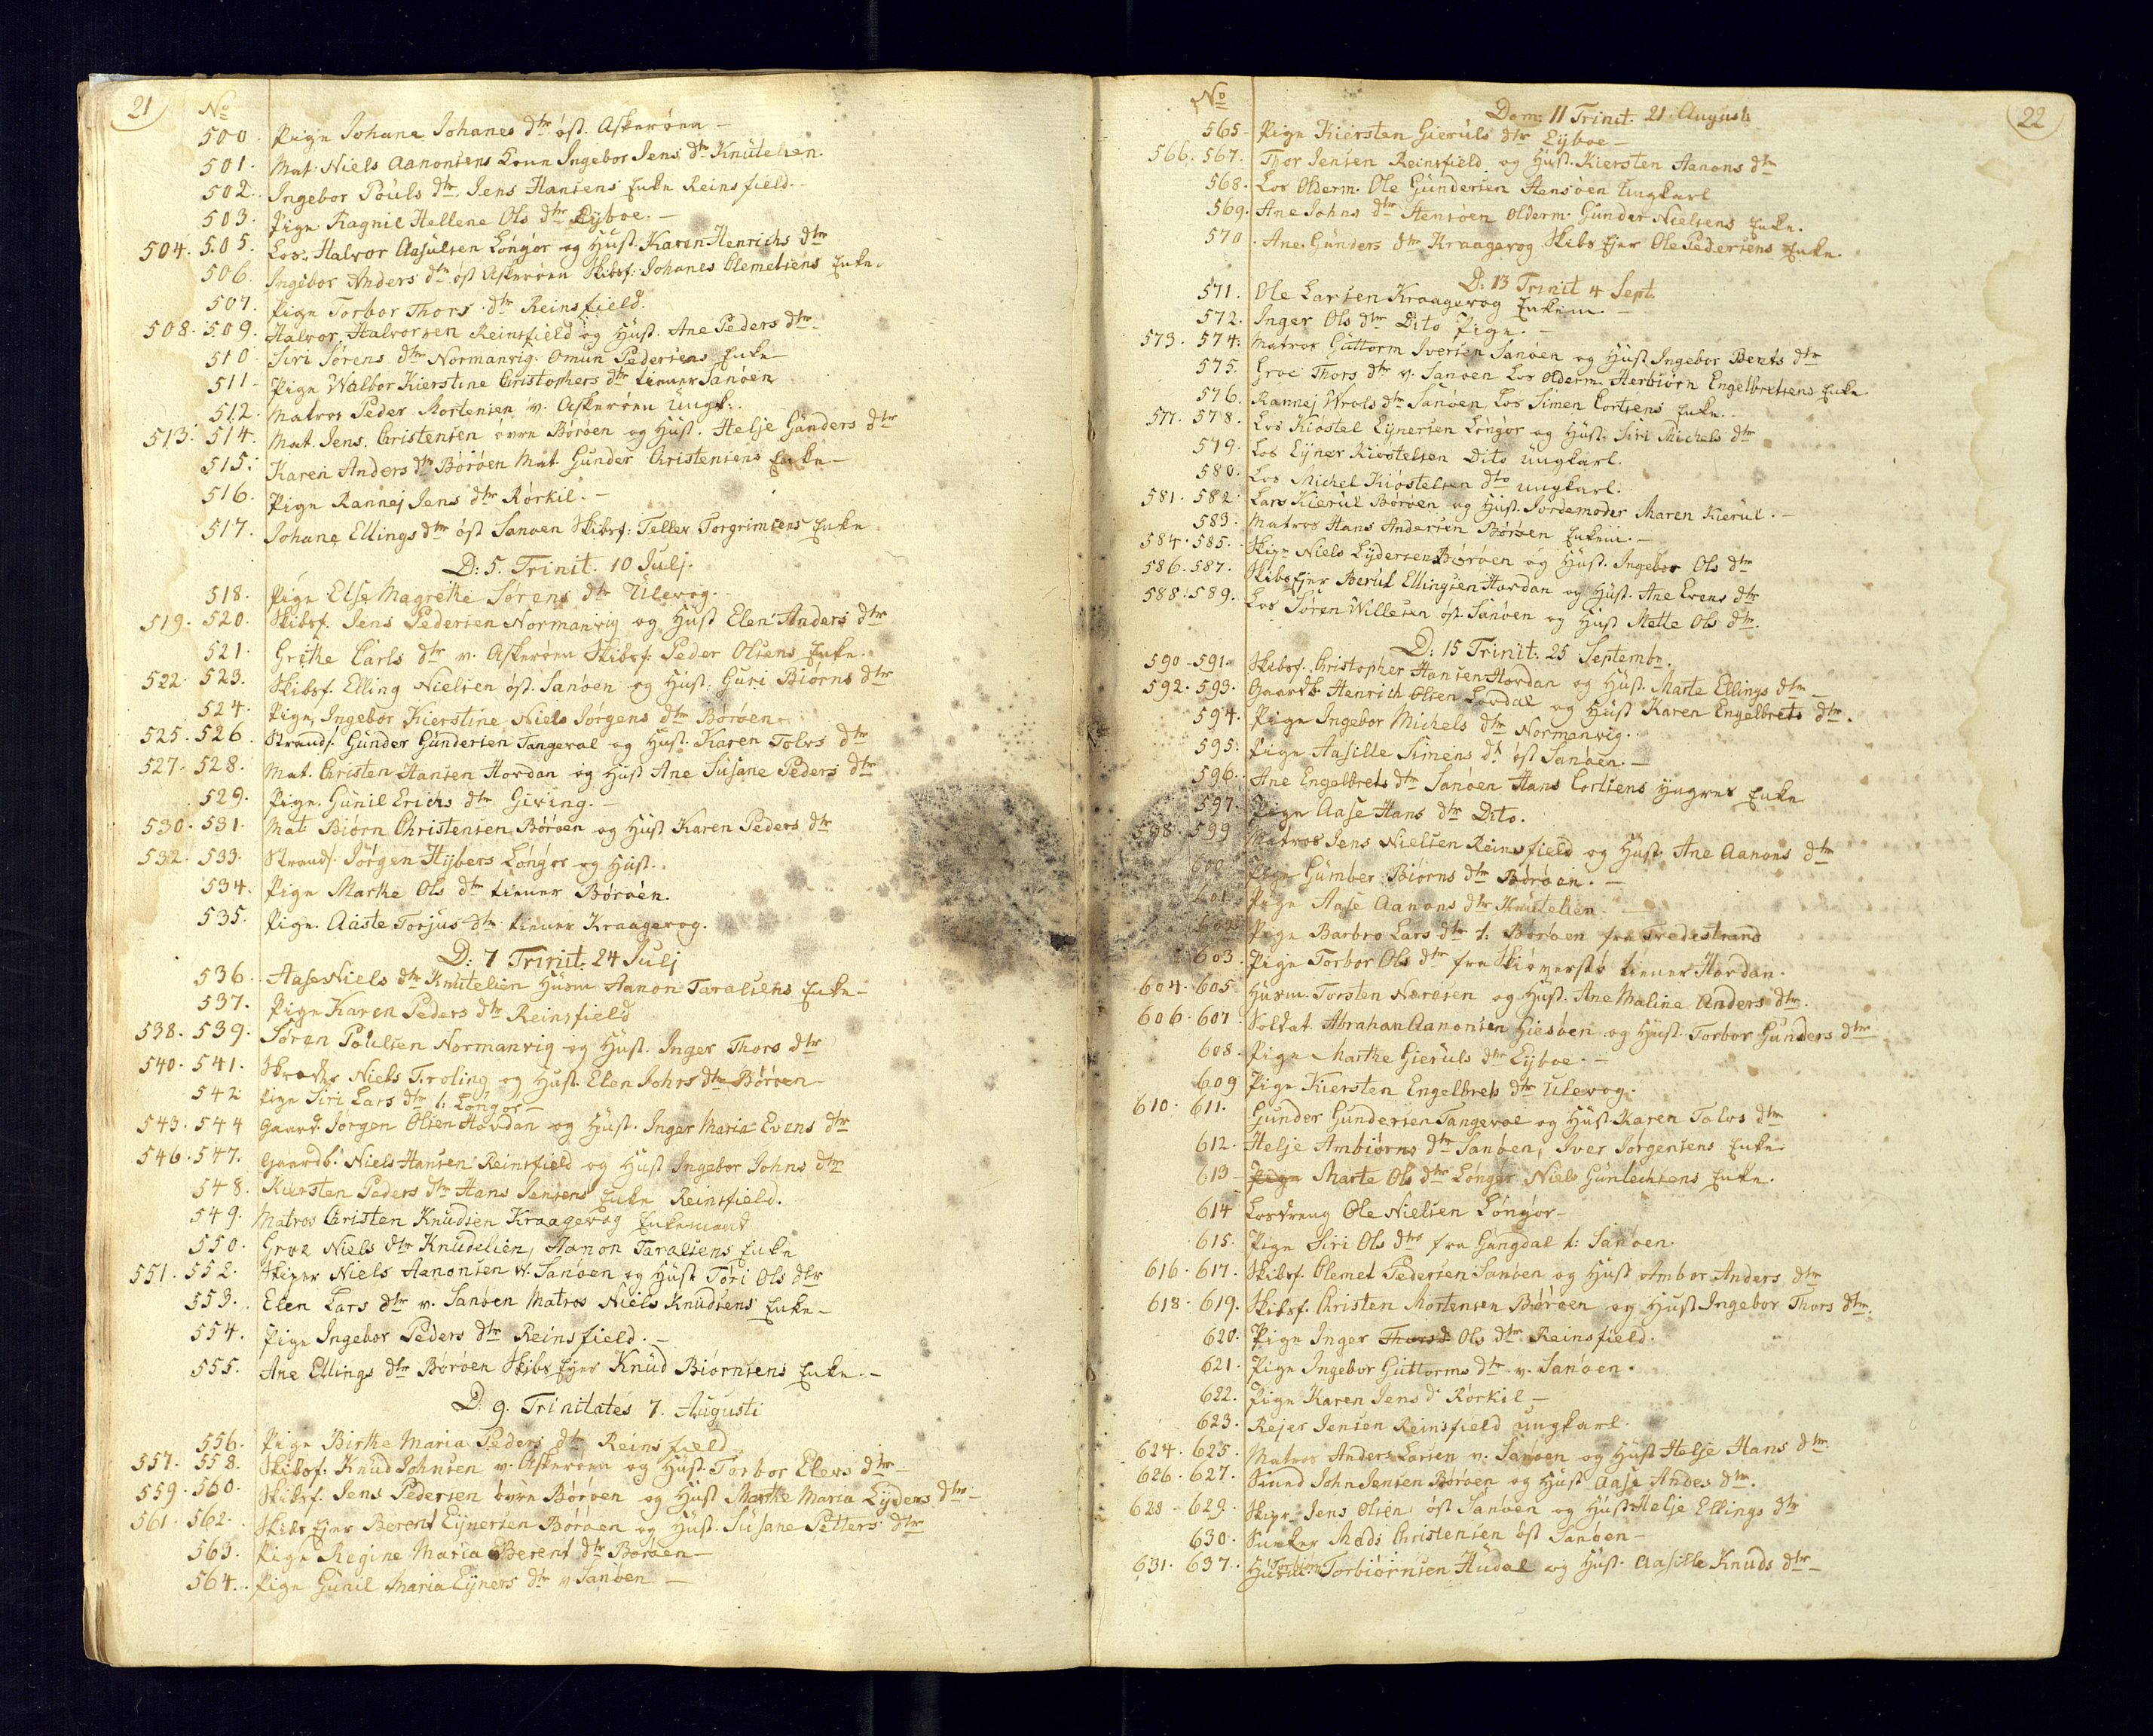 21
No
500. Pige Johane Johanes dtr öst. Askerøen –
501. Mat. Niels Aanonsens Kone Ingebor Jens dtr Knutelien.
502. Ingebor Pouls dtr Jens Hansens Enke Reinsfield.
503. Pige Ragnil Hellene Ols dtr Eyboe. –
504. 505. Los. Halvor Aasulsen Löngör og Hust. Karen Henrichs dtr
506. Ingebor Anders dtr öst Askerøen Skibsf: Johanes Clemetsens Enke.
507. Pige Torbor Thors dtr Reinsfield.
508. 509. Halvor Halvorsen Reinsfield og Hust. Ane Peders dtr
510. Siri Sörens dtr Normanvig. Omun Pedersens Enke –
511 – Pige Walbor Kierstine Christophers dtr tiener Sanöen
512. Matros Peder Mortensen v. Askerøen Ungk:
513. 514. Mat. Jens Christensen övre Börøen og Hust. Helje Gunders dtr
515. Karen Anders dtr Börøen Mat. Gunder Christensens Enke –
516. Pige Rannej Jens dtr Rörkil. –
517. Johane Ellings dtr öst Sanøen Skibsf: Tellev Torgrimsens Enke
D: 5. Trinit. 10 Julj.
518. Pige Else Magrethe Sörens dtr Ulevog.
519. 520. Skibsf. Jens Pedersen Normanvig og Hust Elen Anders dtr
521. Grethe Carls dtr v. Askerøen Skibsf. Peder Olsens Enke.
522. 523. Skibsf. Elling Nielsen öst. Sanöen og Hust. Guri Biörns dtr
524. Pige Ingebor Kierstine Niels Jörgens dtr Börøen
525. 526. Strands. Gunder Gundersen Tangeval og Hust. Karen Tolvs dtr
527. 528. Mat. Christen Hansen Hovdan og Hust Ane Susane Peders dtr
529. Pige. Gunil Erichs dtr Giving. –
530. 531. Mat. Biörn Christensen Börøen og Hust Karen Peders dtr
532. 533. Strands. Jörgen Hybers Löngör og Hust.
534. Pige Marthe Ols dtr tiener Börøen.
535. Pige. Aaste Torjus dtr tiener Kraagevog.
D: 7 Trinit. 24 Julj
536. Aase Niels dtr Knutelien Husm Aanon Taralsens Enke –
537. Pige Karen Peders dtr Reinsfield
538. 539. Sören Poulsen Normanvig og Hust. Inger Thors dtr
540. 541. Niels Troling og Hust. Elen Johrs dtr Börøen
542 Pige Siri Lars dtr t: Löngör –
543. 544 Gaard. Jörgen Olsen Hovdan og Hust. Inger Maria Evens dtr
546. 547. Gaardb. Niels Hansen Reinsfield og Hust Ingebor Johns dtr
548. Kiersten Peders dtr Hans Jensens Enke Reinsfield.
549. Matros Christen Knudsen Kraagevog Enkemand
550. Groe Niels dtr Knudelien, Aanon Taralsens Enke
551. 552. Skiper Niels Aanonsen v. Sanøen og Hust Töri Ols dtr
553. Elen Lars dtr v. Sanøen Matros Niels Knudsens Enke –
554. Pige Ingebor Peders dtr Reinsfield. –
555. Ane Ellings dtr Börøen Skibs Ejer Knud Biörnsens Enke –
D. 9. Trinitates 7. Augusti
556. Pige Birthe Maria Peders dtr Reinsfield
557. 558. Skibsf. Knud Johnsen v. Askerøen og Hust. Torbor Elevs dtr –
559. 560. Skibsf. Jens Pedersen övre Börøen og Hust Marthe Maria Lyders dtr –
561. 562. Skibs Ejer Berent Eynersen Börøen og Hust. Susane Petters dtr
563. Pige Regine Maria Berent dtr Börøen –
564. Pige Gunil Maria Eyners dtr v Sanøen –
22
No
Dom: 11 Trinit. 21 Augusti
565 – Pige Kiersten Gieruls dtr Eyboe –
566. 567. Thor Jensen Reinsfield og Hust. Kiersten Aanons dtr
568. Los Olderm. Ole Gundersen Stensöen Ungkarl
569. Ane Johns dtr Stensöen Olderm. Gunder Nielsens Enke.
570. Ane Gunders dtr Kraagevog Skibs Ejer Ole Pedersens Enke.
D: 13 Trinit 4 Sept.
571. Ole Larsen Kraagevog Enkem. –
572. Inger Ols dtr Dito Pige. –
573. 574. Matros Guttorm Iversen Sanøen og Hust Ingebor Bents dtr
575. Groe Thors dtr v. Sanøen Los Olderm. Herbiörn Engelbretsens Enke
576. Rannej Wrols dtr Sanøen, Los Simen Cortsens Enke.
577. 578. Los Kiöstel Eynersen Löngör og Hust. Siri Michels dtr
579. Los Eyner Kiöstelsen Dito Ungkarl.
580. Los Michel Kiöstelsen dto ungkarl.
581. 582. Lars Kierul Börøen og Hust. Jordemoder Maren Kierul. –
583. Matros Hans Andersen Börøen Enkem. –
584. 585. Skipr Niels Lydersen Börøen og Hust. Ingebor Ols dtr
586. 587. Skibs Ejer Berul Ellingsen Hovdan og Hust. Ane Evens dtr
588. 589. Los Sören Willesen öst. Sanøen og Hust Mette Ols dtr.
D: 15 Trinit. 25 Septembr.
590 – 591. Skibsf. Christopher Hansen Hovdan og Hust. Marte Ellings dtr –
592. 593. Gaardb Henrich Olsen Lovdal og Hust Karen Engelbrets dtr.
594. Pige Ingebor Michels dtr Normanvig.
595. Pige Aasille Simens dt öst Sanøen. –
596. Ane Engelbrets dtr Sanøen Hans Cortsens yngres Enke
597. Pige Aase Hans dtr Dito.
598. 599 Matros Jens Nielsen Reinsfield og Hust. Ane Aanons dtr
600. Pige Gumber Biörns dtr Börøen. –
601. Pige Aase Aanons dtr Knutelien. –
602 Pige Barbro Lars dtr t: Börøen fra Tredestrand
603. Pige Torbor Ols dtr fra tiener Hovdan.
604. 605. Husm. Torsten Naresen og Hust. Ane Maline Anders dtr.
606. 607. Soldat. Abraham Aanonsen Giesøen og Hust. Torbor Gunders dtr
608. Pige Marthe Gieruls dtr Eyboe. –
609 Pige Kiersten Engelbrets dtr Ulevog.
610. 611. Gunder Gundersen Tangevoe og Hust Karen Tolvs dtr
612. Helje Ambiörns dtr Sanøen, Iver Jörgensens Enke.
613 – Pige Marte Ols dtr Löngör Niels Gunlechsens Enke.
614 Losdreng Ole Nielsen Löngör –
615. Pige Siri Ols dtr fra Gangdal t: Sanøen.
616. 617. Skibsf. Clemet Pedersen Sanøen og Hust Ambor Anders dtr
618. 619. Skibsf. Christen Mortensen Börøen og Hust Ingebor Thors dtr.
620. Pige Inger Thorsd Ols dtr Reinsfield.
621. Pige Ingebor Guttorms dtr v. Sanøen.
622. Pige Karen Jens d Rörkil –
623. Rejer Jensen Reinsfield ungkarl.
624. 625. Matros Anders Larsen v. Sanøen og Hust Helje Hans dtr.
626. 627. John Jensen Börøen og Hust Aase Andes dtr.
628 – 629. Skipr Jens Olsen öst Sanøen og Hust Helje Ellings dtr
630. Mads Christensen öst Sanøen –
631. 637. Husm. Torbiörn Torbiörnsen Hudal og Hust. Aasille Knuds dtr –